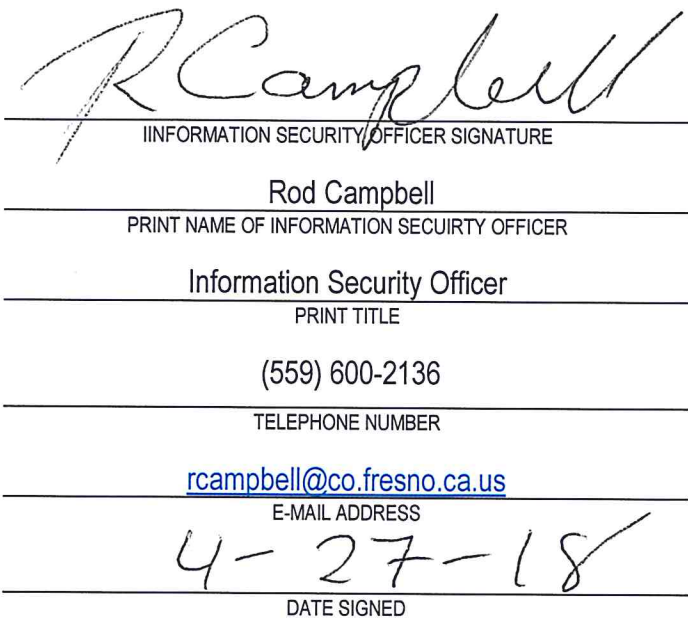 RCampbell
IINFORMATION SECURITY OFFICER SIGNATURE
Rod Campbell
PRINT NAME OF INFORMATION SECUIRTY OFFICER
Information Security Officer
PRINT TITLE
(559) 600-2136
TELEPHONE NUMBER
rcampbell@co.fresno.ca.us
E-MAIL ADDRESS
4-27-18
DATE SIGNED